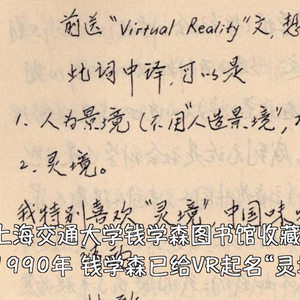 前送"Virtual Reality"文,想
此词中译,可以是
1. 人为景境(不用"人造景境",
2. 灵境。
我特别喜欢"灵境",中国味
上海交通大学钱学森图书馆收藏
1990年 钱学森已给VR起名“灵